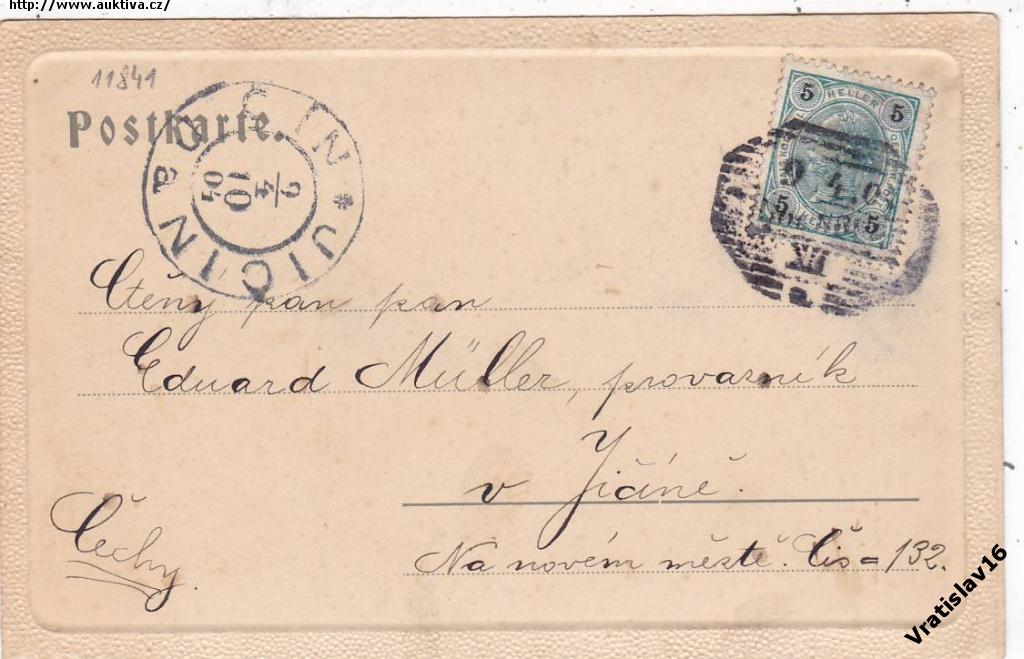 http://www.auktiva.cz/
11841
Postkarte.
JIČIN * JIČIN a
2/4
10
04
5 HELLER 5
5 5
2 4 0
III
Ctěný pan pan
Eduard Müller, provazník
v Jičíně.
Čechy.
Na novém městě. Čís = 132.
Vratislav16